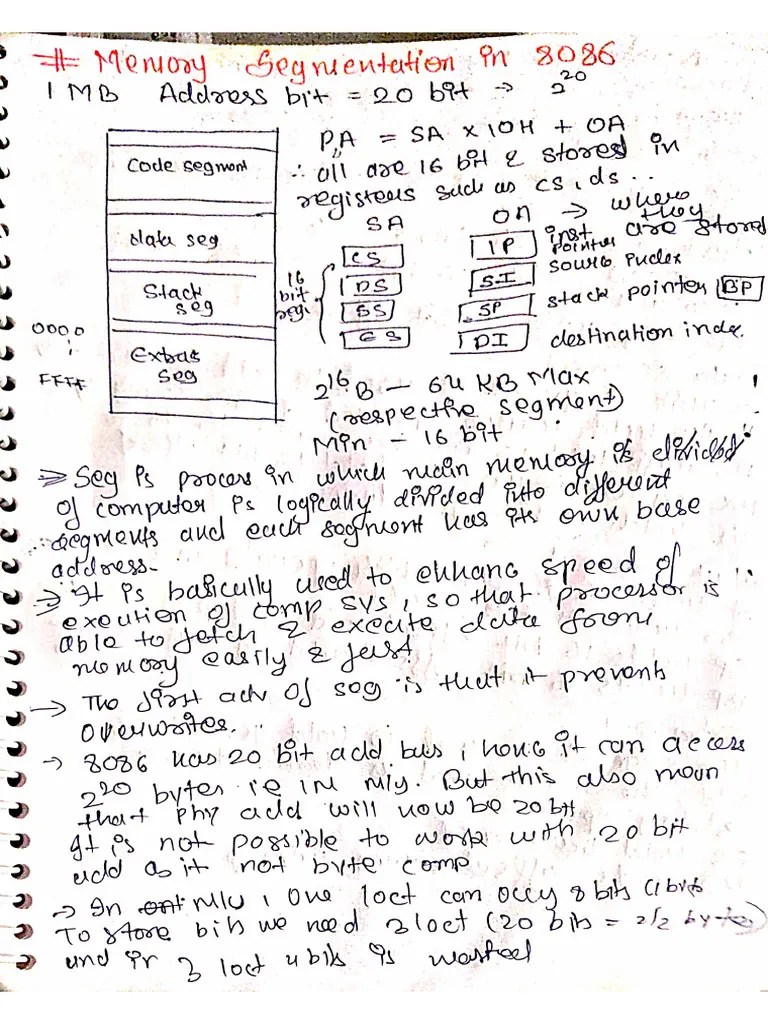 # Memory Segmentation in 8086
1 MB Address bit = 20 bit → 2^20
P.A = SA x 10H + OA
∴ all are 16 bit & stored in
registers such as cs, ds ..
SA OA → where they are stored
CS IP inst pointer
DS SI source index
SS SP stack pointer BP
ES DI destination inde.
16 bit regs
Code segment
data seg
Stack seg
Extra seg
0000
FFFF
2^16 B — 64 KB Max
(respective segment)
Min - 16 bit
⇒ Seg is process in which main memory is divided
of computer is logically divided into different
segments and each segment has its own base
address.
⇒ It is basically used to enhanc speed of
exeution of comp sys, so that processor is
able to fetch & execute data from
memory easily & fast
→ The first adv of seg is that it prevent
overwrites.
→ 8086 has 20 bit add bus, hence it can access
2^20 bytes ie 1M m/y. But this also mean
that phy add will now be 20 bit
It is not possible to work with 20 bit
add as it not byte comp
→ In m/y, one loct can occy 8 bits (1 byte
To store bits we need 3 loct (20 bits = 2 1/2 byte)
and in 3 loct 4 bits is wasted